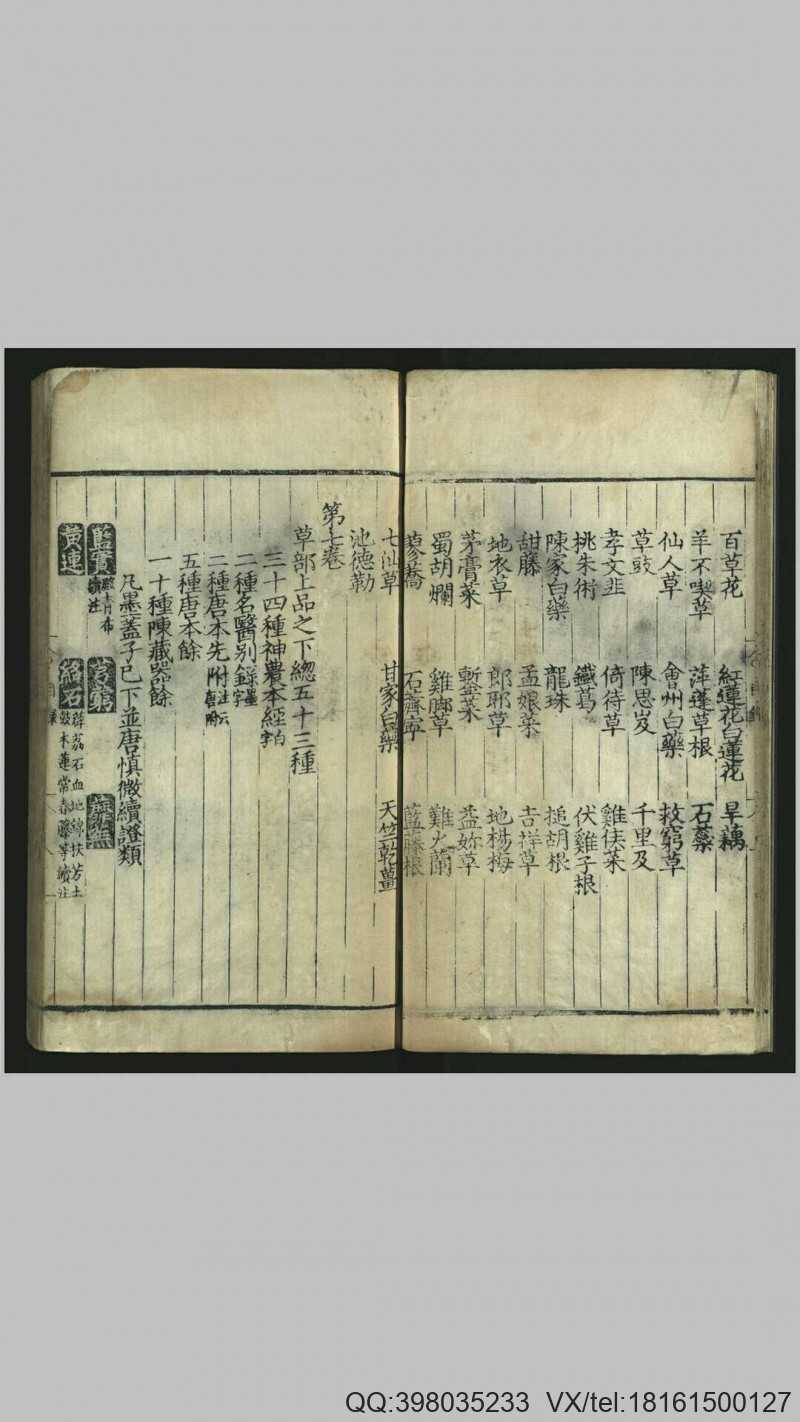 百草花 紅蓮花白蓮花 旱藕
羊不喫草 萍蓬草根 石蘂
仙人草 會州白藥 救窮草
草豉 陳思岌 千里及
孝文韭 倚待草 雞侯菜
桃朱術 鐵葛 伏雞子根
陳家白藥 龍珠 搥胡根
甜藤 孟娘菜 吉祥草
地衣草 郎耶草 地楊梅
茅膏菜 䥷菜 益妳草
蜀胡爛 雞脚草 難火蘭
蓼蕎 石薺寧 藍藤根
七仙草 甘家白藥 天竺乾薑
池德勒
第七卷
草部上品之下緫五十三種
三十四種神農本經 白字
二種名醫別錄 墨字
二種唐本先附 注云唐附
五種唐本餘
一十種陳藏器餘
凡墨蓋子已下並唐慎微續證類
藍實 青布續注
黃連 絡石 薜荔石血地錦扶芳土鼓木蓮常春藤等續注
QQ:398035233 VX/tel:18161500127